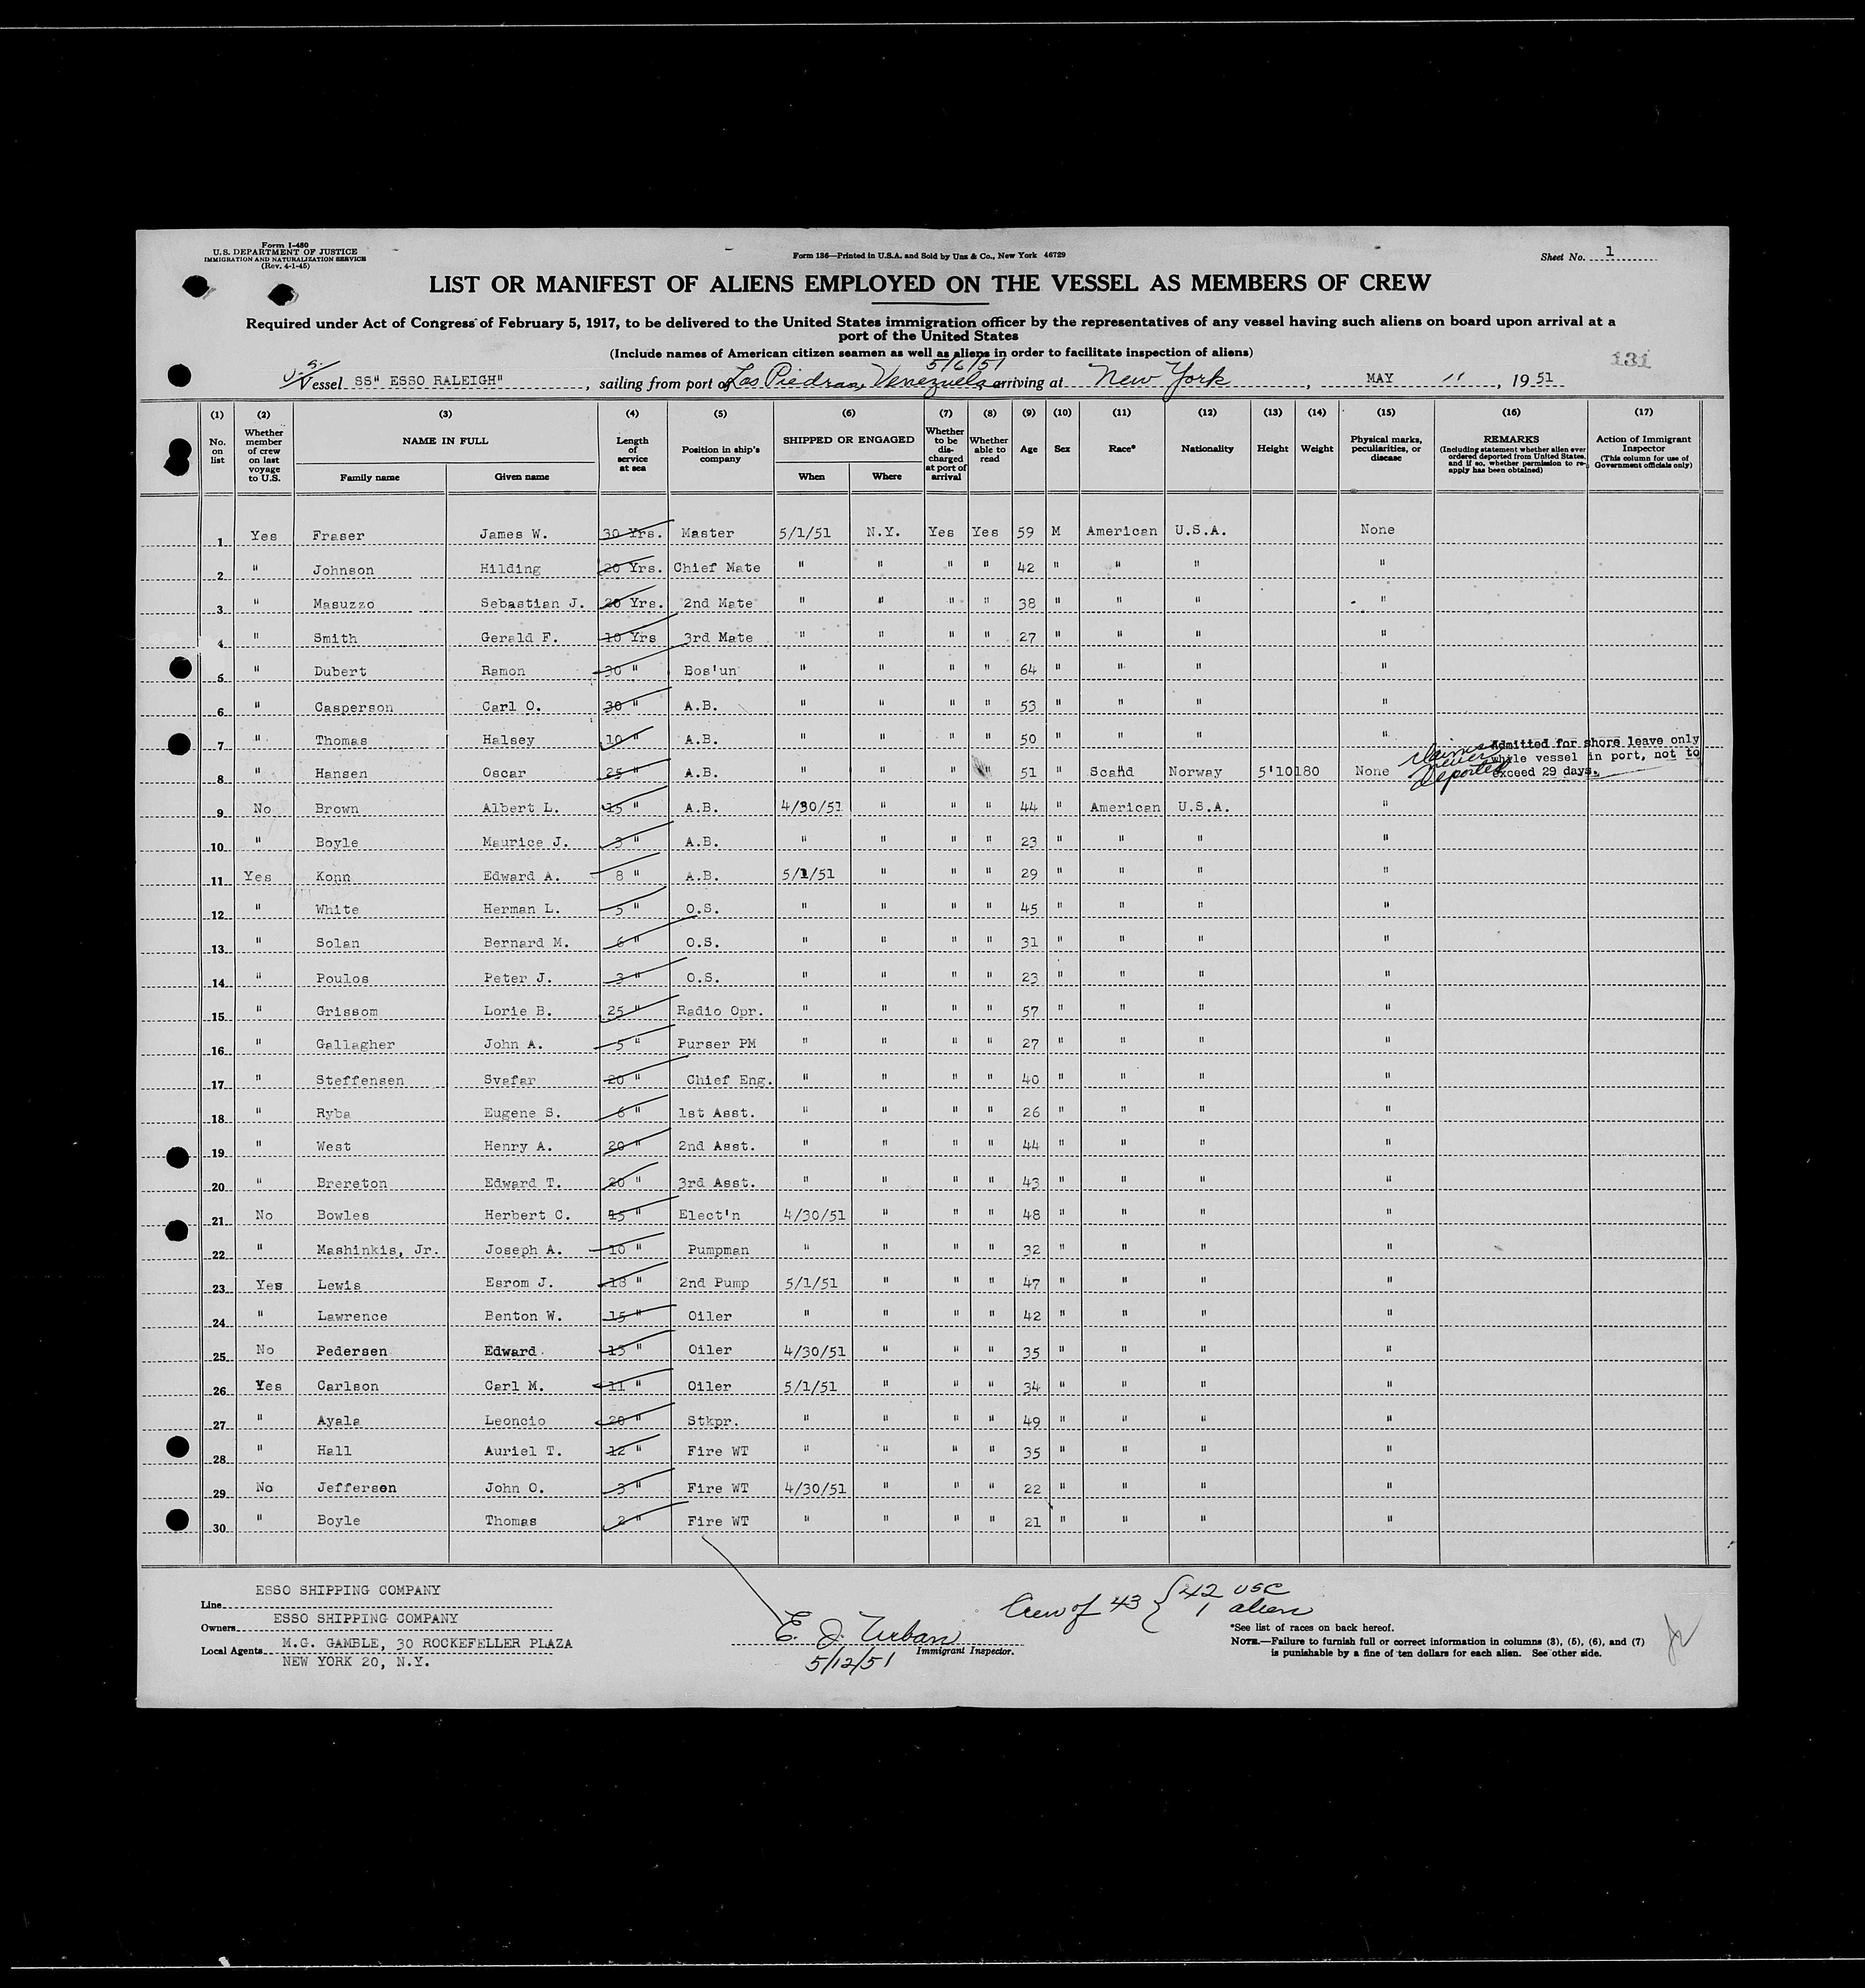 Form I-480
U.S. DEPARTMENT OF JUSTICE
IMMIGRATION AND NATURALIZATION SERVICE
(Rev. 4-1-45)
Form 136—Printed in U.S.A. and Sold by Unz & Co., New York 46729
Sheet No. 1
LIST OR MANIFEST OF ALIENS EMPLOYED ON THE VESSEL AS MEMBERS OF CREW
Required under Act of Congress of February 5, 1917, to be delivered to the United States immigration officer by the representatives of any vessel having such aliens on board upon arrival at a
port of the United States
(Include names of American citizen seamen as well as aliens in order to facilitate inspection of aliens)
131
5/6/51
U.S. Vessel SS" ESSO RALEIGH", sailing from port of Las Piedras, Venezuela, arriving at New York, MAY 11, 1951
(1) (2) (3) (4) (5) (6) (7) (8) (9) (10) (11) (12) (13) (14) (15) (16) (17)
No. on list
Whether member of crew on last voyage to U.S.
NAME IN FULL
Family name Given name
Length of service at sea
Position in ship's company
SHIPPED OR ENGAGED
When Where
Whether to be discharged at port of arrival
Whether able to read
Age Sex Race* Nationality Height Weight
Physical marks, peculiarities, or disease
REMARKS
(Including statement whether alien ever ordered deported from United States, and if so, whether permission to reapply has been obtained)
Action of Immigrant Inspector
(This column for use of Government officials only)
1 Yes Fraser James W. 30 Yrs. Master 5/1/51 N.Y. Yes Yes 59 M American U.S.A. None
2 " Johnson Hilding 20 Yrs. Chief Mate " " " " 42 " " " "
3 " Masuzzo Sebastian J. 20 Yrs. 2nd Mate " " " " 38 " " " "
4 " Smith Gerald F. 10 Yrs 3rd Mate " " " " 27 " " " "
5 " Dubert Ramon 30 " Bos'un " " " " 64 " " " "
6 " Casperson Carl O. 30 " A.B. " " " " 53 " " " "
7 " Thomas Halsey 10 " A.B. " " " " 50 " " " "
8 " Hansen Oscar 25 " A.B. " " " " 51 " Scand Norway 5'10 180 None
Claims never deported
Admitted for shore leave only
while vessel in port, not to
exceed 29 days.
9 No Brown Albert L. 15 " A.B. 4/30/51 " " " 44 " American U.S.A. "
10 " Boyle Maurice J. 3 " A.B. " " " " 23 " " " "
11 Yes Konn Edward A. 8 " A.B. 5/1/51 " " " 29 " " " "
12 " White Herman L. 5 " O.S. " " " " 45 " " " "
13 " Solan Bernard M. 6 " O.S. " " " " 31 " " " "
14 " Poulos Peter J. 3 " O.S. " " " " 23 " " " "
15 " Grissom Lorie B. 25 " Radio Opr. " " " " 57 " " " "
16 " Gallagher John A. 5 " Purser PM " " " " 27 " " " "
17 " Steffensen Svafar 20 " Chief Eng. " " " " 40 " " " "
18 " Ryba Eugene S. 6 " 1st Asst. " " " " 26 " " " "
19 " West Henry A. 20 " 2nd Asst. " " " " 44 " " " "
20 " Brereton Edward T. 20 " 3rd Asst. " " " " 43 " " " "
21 No Bowles Herbert C. 15 " Elect'n 4/30/51 " " " 48 " " " "
22 " Mashinkis, Jr. Joseph A. 10 " Pumpman " " " " 32 " " " "
23 Yes Lewis Esrom J. 18 " 2nd Pump 5/1/51 " " " 47 " " " "
24 " Lawrence Benton W. 15 " Oiler " " " " 42 " " " "
25 No Pedersen Edward 15 " Oiler 4/30/51 " " " 35 " " " "
26 Yes Carlson Carl M. 11 " Oiler 5/1/51 " " " 34 " " " "
27 " Ayala Leoncio 20 " Stkpr. " " " " 49 " " " "
28 " Hall Auriel T. 12 " Fire WT " " " " 35 " " " "
29 No Jefferson John O. 3 " Fire WT 4/30/51 " " " 22 " " " "
30 " Boyle Thomas 2 " Fire WT " " " " 21 " " " "
Line ESSO SHIPPING COMPANY
Owners ESSO SHIPPING COMPANY
Local Agents M.G. GAMBLE, 30 ROCKEFELLER PLAZA
NEW YORK 20, N.Y.
E. J. Urban
Immigrant Inspector.
5/12/51
Crew of 43 { 42 USC
1 alien
*See list of races on back hereof.
NOTE.—Failure to furnish full or correct information in columns (3), (5), (6), and (7)
is punishable by a fine of ten dollars for each alien. See other side.